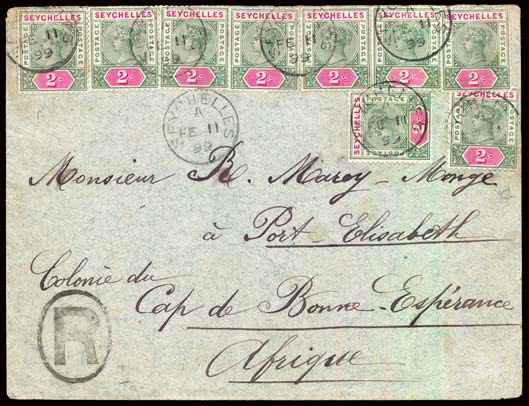 SEYCHELLES SEYCHELLES SEYCHELLES SEYCHELLES SEYCHELLES SEYCHELLES SEYCHELLES
POSTAGE POSTAGE POSTAGE POSTAGE POSTAGE POSTAGE POSTAGE
2c 2c 2c 2c 2c 2c 2c
SEYCHELLES
A
FE 11
99
SEYCHELLES
POSTAGE
2c
POSTAGE
2c
Monsieur R. Marey-Monge
à Port-Elisabeth
Colonie du
Cap de Bonne-Espérance
Afrique
R